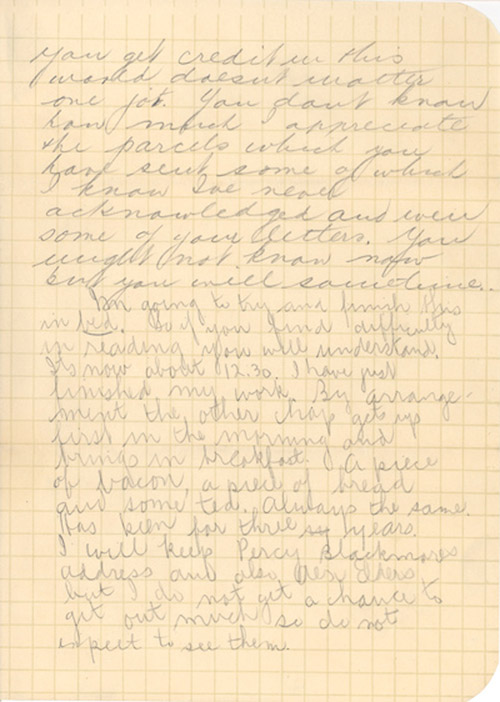 You get credit in this
world doesn't matter
one jot. You don't know
how much I appreciate
the parcels which you
have sent some of which
I know I've never
acknowledged and even
some of your letters. You
might not know now
but you will sometime..
I'm going to try and finish this
in bed. So if you find difficulty
in reading you will understand.
It's now about 12.30. I have just
finished my work. By arrange-
ment the other chap gets up
first in the morning and
brings in breakfast. A piece
of bacon, a piece of bread
and some tea. Always the same.
Has been for three years.
I will keep Percy Blackmores
address and also
but I do not get a chance to
get out much so do not
expect to see them.